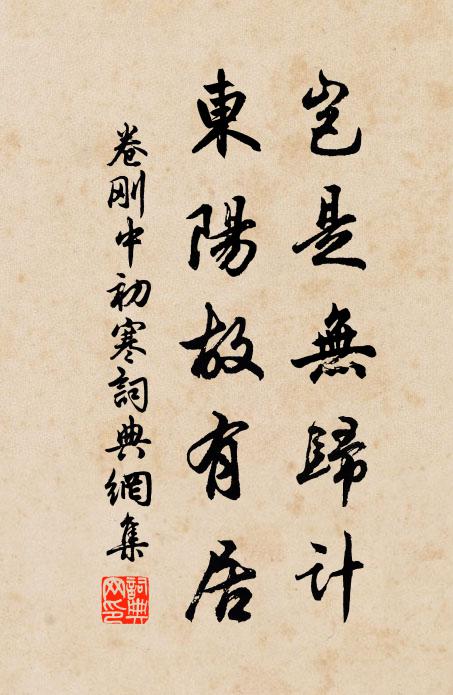 豈是無歸計
東陽故有居
卷剛中初寒詞典網集
詞典
网印